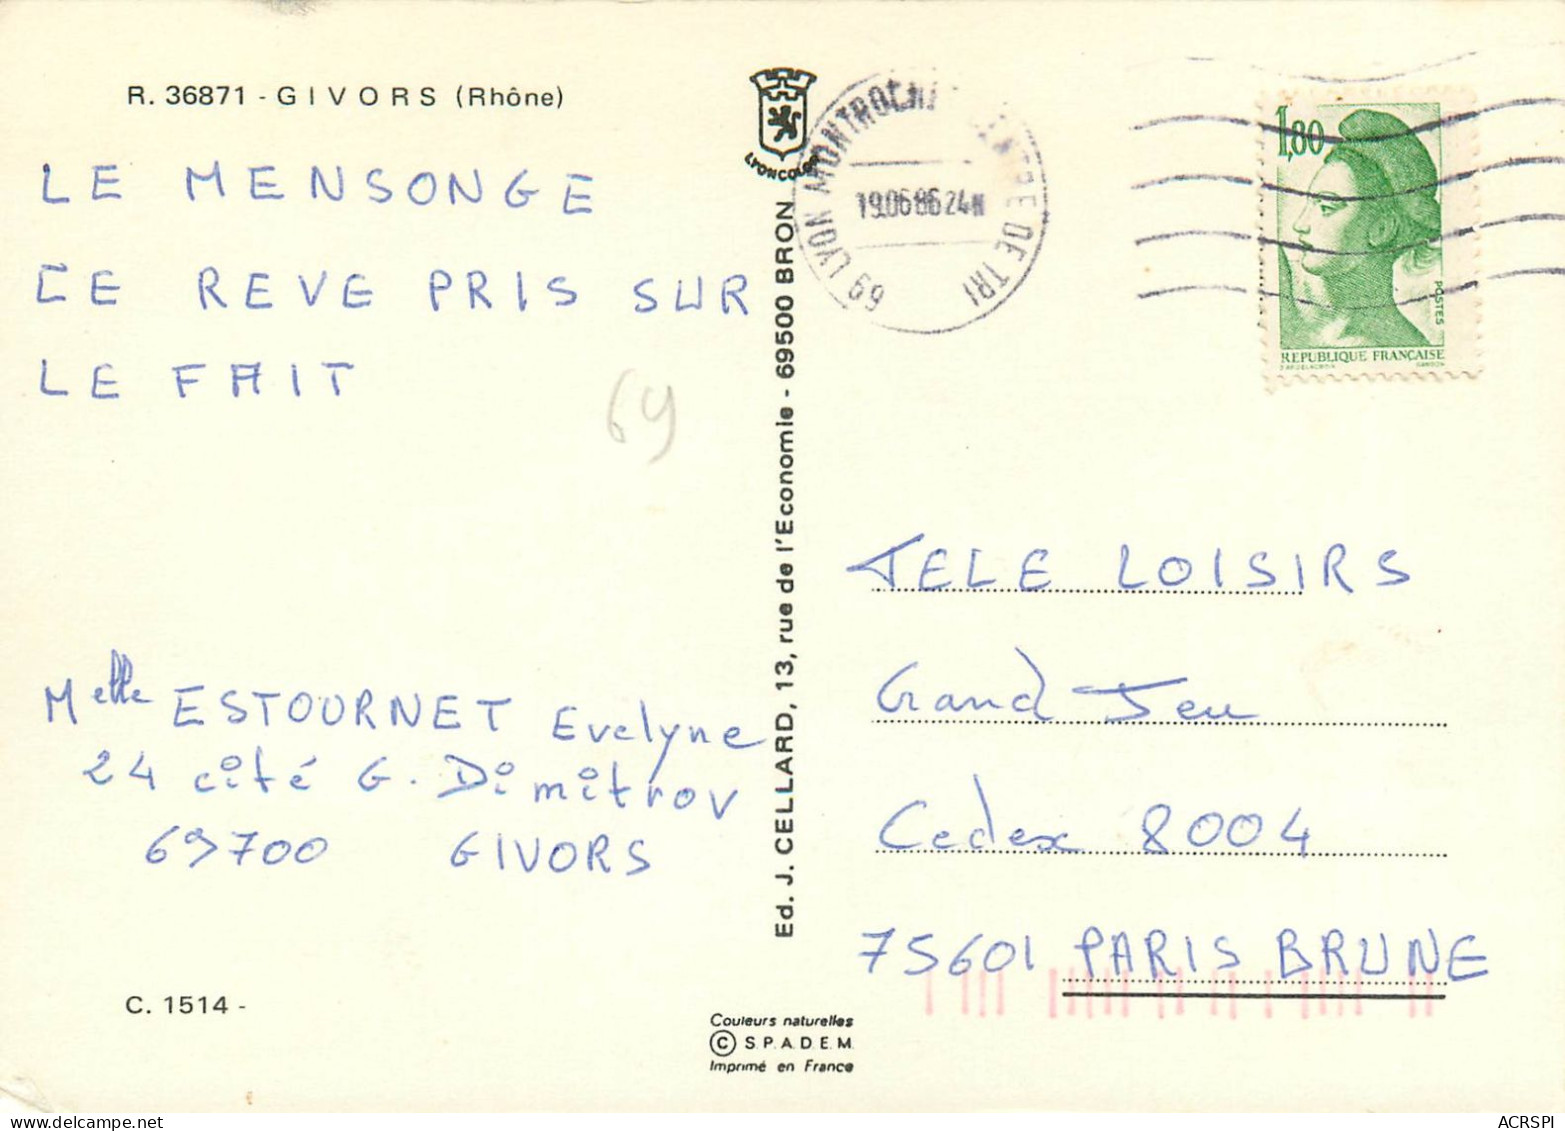 R. 36871 - GIVORS (Rhône)
LE MENSONGE
CE REVE PRIS SUR
LE FAIT
69
Melle ESTOURNET Evelyne
24 cité G. Dimitrov
69700 GIVORS
C. 1514 -
LYONCOLOR
Ed. J. CELLARD, 13, rue de l'Economie - 69500 BRON
Couleurs naturelles
© S.P.A.D.E.M.
Imprimé en France
69 LYON MONTROCHET CENTRE DE TRI
19.06.86 24H
1,80
POSTES
REPUBLIQUE FRANÇAISE
D'AP. DELACROIX GANDON
TELE LOISIRS
Grand Jeu
Cedex 8004
75601 PARIS BRUNE
ACRSPI
www.delcampe.net